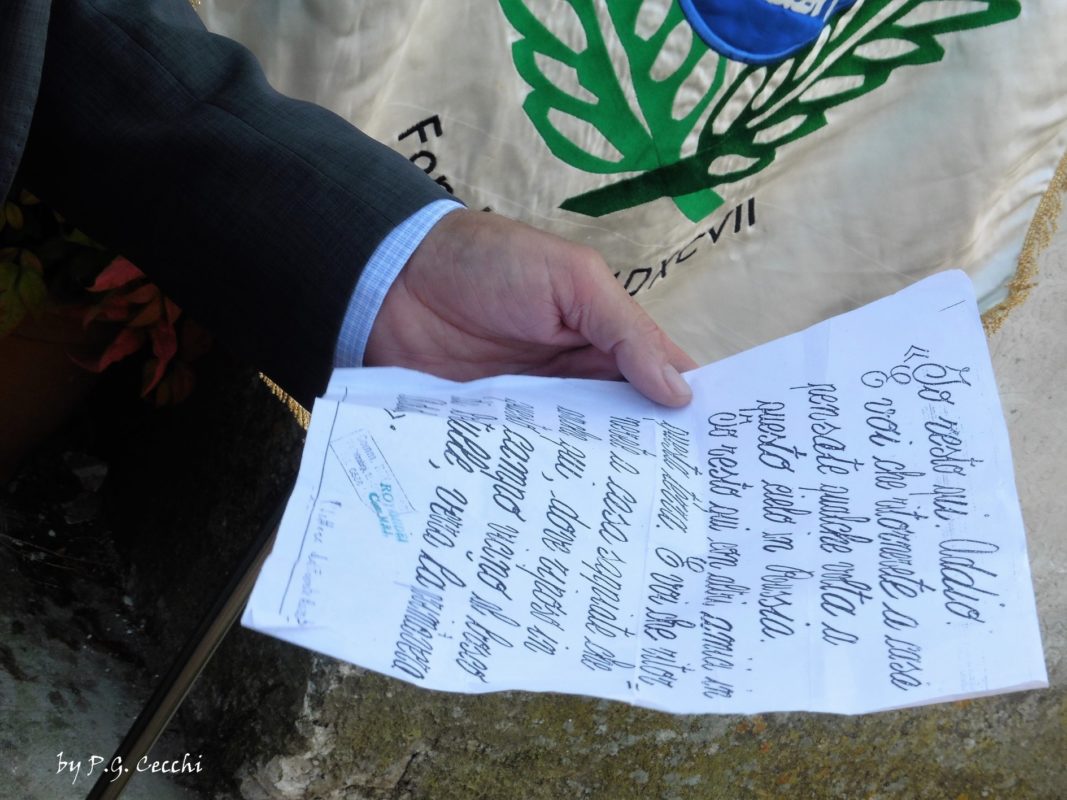 DXCVII
«Io resto qui. Addio.
E voi che ritornerete a casa
pensate qualche volta a
questo cielo in Russia.
Io resto qui con altri amici in
questa terra. E voi che ritor
nerete a casa sappiate che
anche qui, dove riposo in
campo vicino al bosco
di betulle, verrà la primavera
».
by P.G. Cecchi